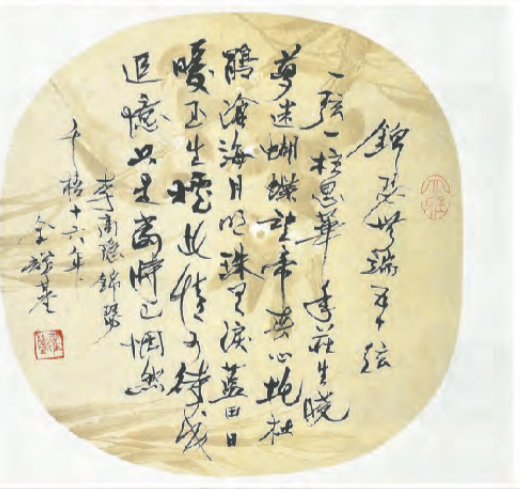 錦瑟無端五十弦
一弦一柱思華年莊生曉
夢迷蝴蝶望帝春心托杜
鵑滄海月明珠有淚藍田日
暖玉生煙此情可待成
追憶只是當時已惘然
李商隱錦瑟
十六年